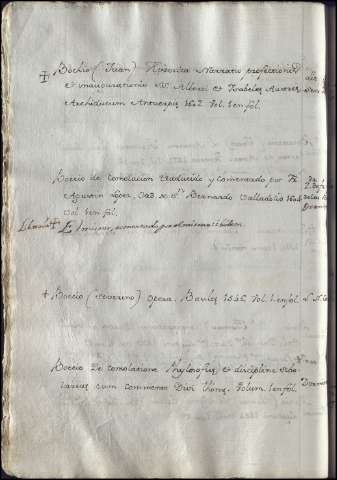 Bochio (Juan) Historica Narratio profectionis
et inaugurationis Alberti et Isabelae Austriae
Archiducum Antuerpiae 1602 Vol. 1 en fol.
Boecio de consolacion traducido y comentado por Fr
Agustin Lopez, Bernardo Valladolid 1604
Vol. 1 en fol.
El mismo, comentado por el mismo ibidem
Boecio (Severino) Opera. Basilea 1546 Vol. 1 en fol
Boecio De consolatione Phylosofiae et disciplina scho
larium cum commento Divi Thome. Volum. 1 en fol.